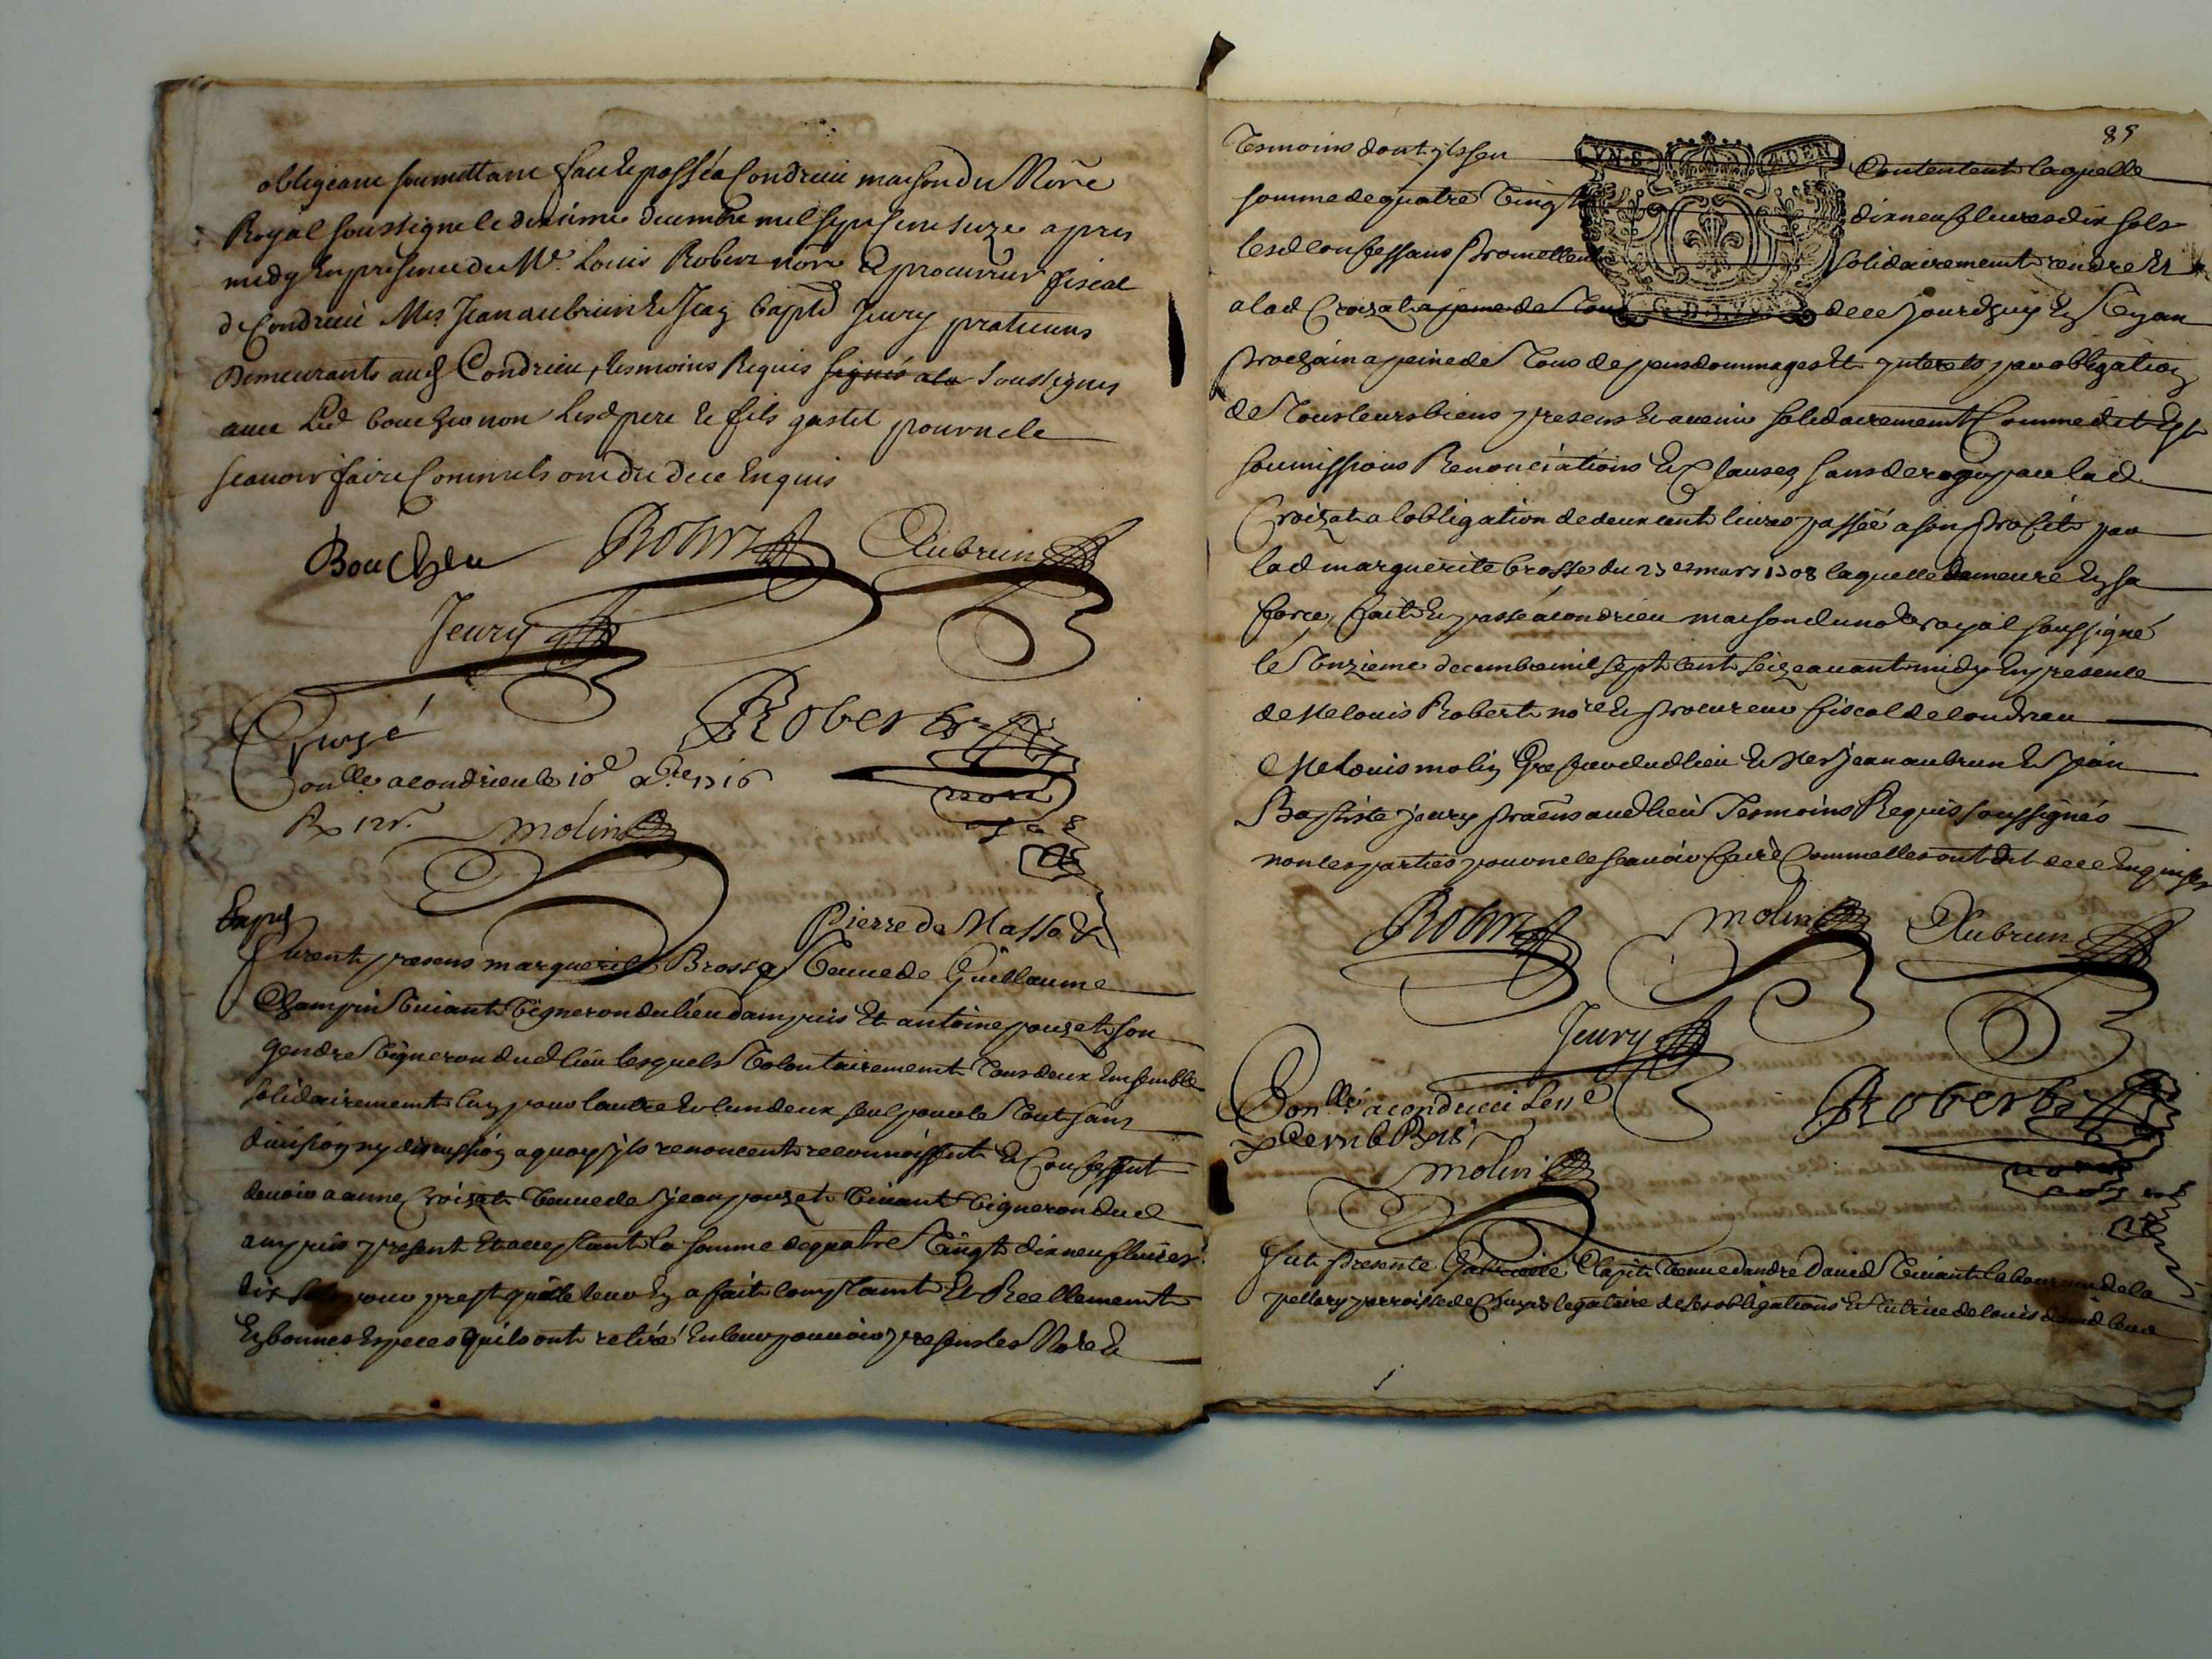 obligeant soumettant fait et passé a Condrieu maison du No.re
Royal soussigne le dixiéme decembre mil sept cent seize apres
midy En presence de M.e Louis Robert no.re & procureur fiscal
de Condrieu M.es Jean aubrun et Jean bapte Jeury praticiens
Demeurants aud Condrieu, tesmoins Requis signés a la soussignes
auec Led bouchu non Lesd pere et fils gastel pour ne le
scauoir faire Comm'ils ont dit de ce Enquis
Bouchu Robert Aubrun
Jeury
Purgé
Robert
Conlle a condrieu le 10e xbre 1716
no.re
R 12s.
molin
Exped
Pierre de Massa
Furent presens marguerite Brossy Veuve de Guillaume
Champin Viuant Vigneron du lieu dampuis Et antoine pouzet son
gendre Vigneron dud lieu lesquels Volontairement Tous deux Ensemble
solidairement lun pour lautre et lun deux seul pour le Tout sans
diuision ny discussion a quoy ils renoncent reconnoissent et Confessent
deuoir a anne Croizat Veuve de jean pouzet Viuant Vigneron dud
ampuis present Et acceptant la somme de quatre Vingt dix neuf liures
dix sols pour prest quelle leur En a fait comptant Et Reellement
En bonnes Especes quils ont retiré En leur pouuoir presents les No.re et
85
Tesmoins dont ils sen Contentent laquelle
somme de quatre Vingt dix neuf liures dix sols
lesd confessans promettent solidairement rendre Et
a lad Croizat a peine de Tous de ce jourdhuy En Vn an
prochain a peine de Tous depens dommages Et interets par obligation
de Tous leurs biens presens et auenir solidairement Comme dit Est
soumissions Renonciations et Clauses sans deroger par lad
Croizat a lobligation de deux cent liures passée a son profit par
lad marguerite brosse du 23e mars 1708 laquelle demeure En sa
force, fait et passé a condrieu maison du no.re royal soussigné
le Onzieme decembre mil sept cent seize auant midy En presence
de Me louis Robert no.re et procureur fiscal de condrieu
Me Louis molin Greffier dud lieu et Mes jean aubrun et jean
Baptiste jeury praens aud lieu Tesmoins Requis soussignés
non les parties pour ne le scauoir faire Comme elles ont dit de ce Enquises
Robert molin Aubrun
Jeury
Conlle a condrieu Le 11e
xbre 1716
Robert
no.re
molin
fut Presente Gabrielle Clapit Veuve dandre Dauid Viuant laboureur de la
pellery parroisse de Chuyes legataire de ses obligations et Tutrice de louis dauid leur